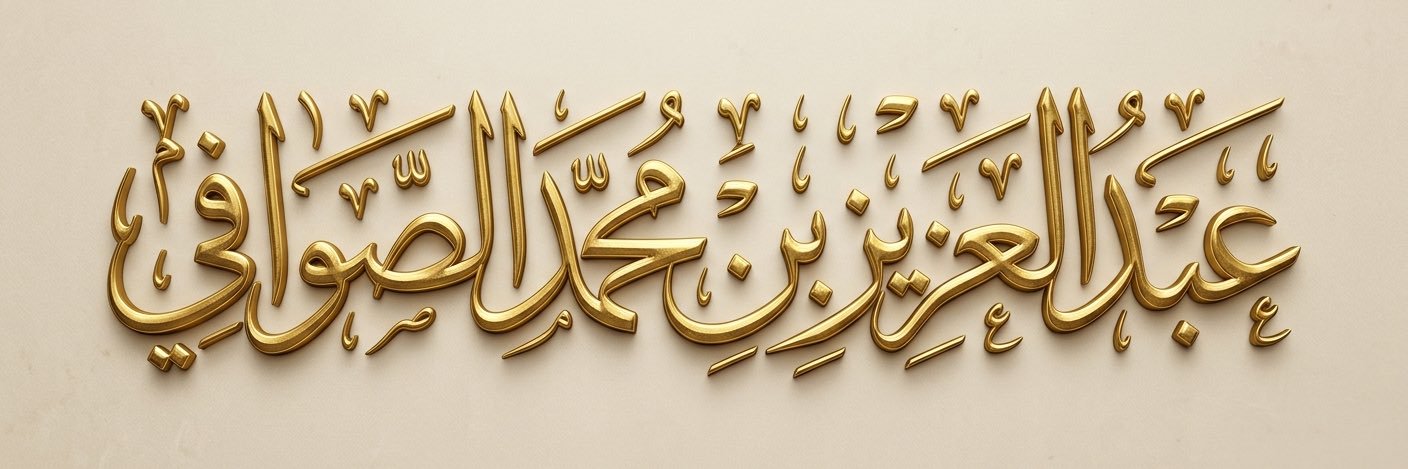 عَبْدُ الْعَزِيزِ بْنِ مُحَمَّد الصَّوَافِي